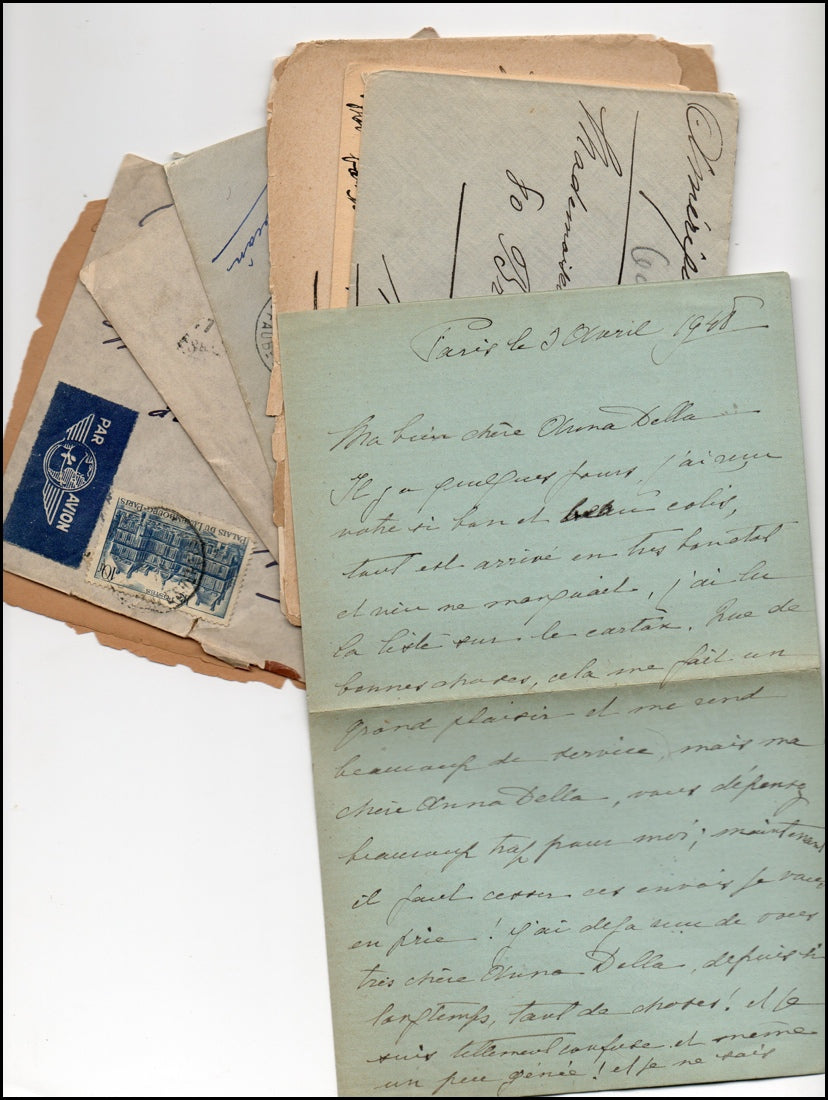 Amérique
Mademoise
PAR AVION
PALAIS DU LUXEMBOURG-PARIS
10F
POSTES
Paris le 3 Avril 1948
Ma bien chère Anna Della
Il y a quelques jours, j'ai reçu
votre si bon et beau colis,
tout est arrivé en très bon état
et rien ne manquait, j'ai lu
la liste sur le carton. Que de
bonnes choses, cela me fait un
grand plaisir et me rend
beaucoup de service, mais ma
chère Anna Della, vous dépensez
beaucoup trop pour moi; maintenant
il faut cesser ces envois je vous
en prie! j'ai déjà reçu de vous
très chère Anna Della, depuis si
longtemps, tant de choses! et je
suis tellement confuse et même
un peu gênée! et je ne sais